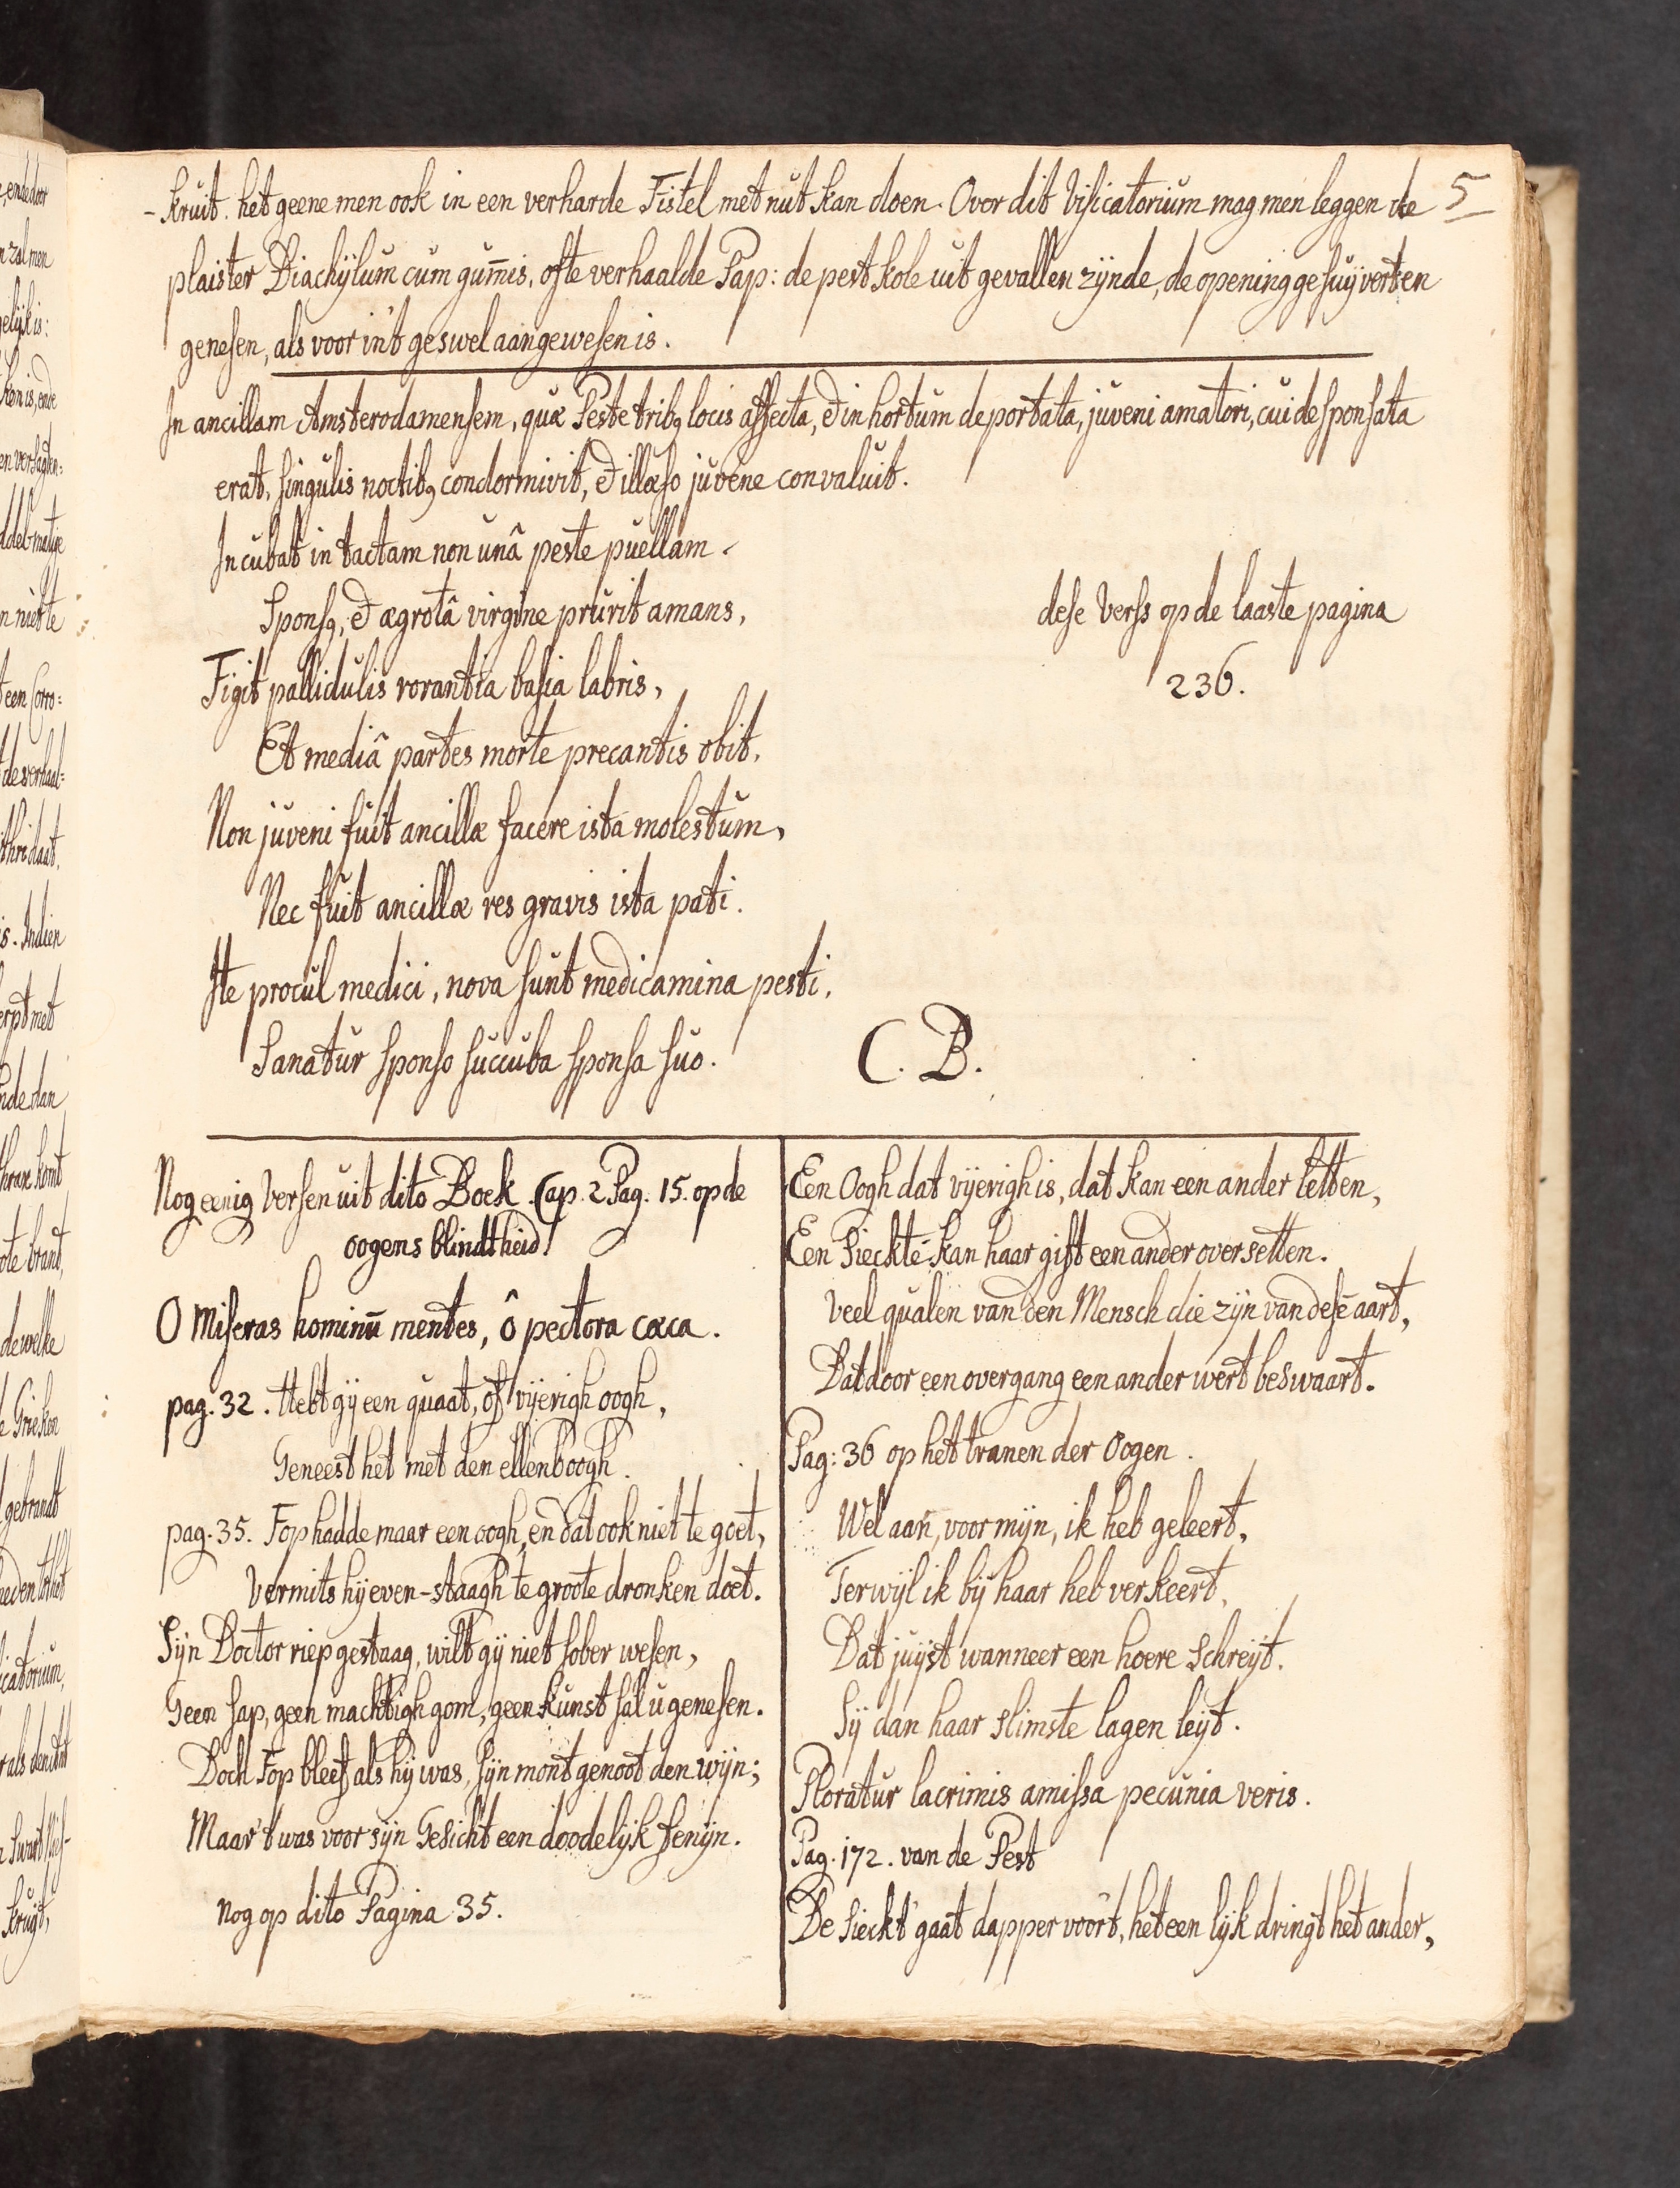 5
-kruit. het geene men ook in een verharde Fistel met nut kan doen. Over dit Visicatorium mag men leggen de
plaister Diachÿlum cum gum̄is, ofte verhaalde Pap: de pest kole uit gevallen zÿnde, de opening gesuÿvert en
genesen, als voor in't geswel aangewesen is.
In ancillam Amsterodamensem, quæ Peste tribꝫ locis affecta, & in hortum deportata, juveni amatori, cui desponsata
erat, singulis noctibꝫ condormivit, & illæso juvene convaluit.
Incubat intactam non unâ peste puellam
Sponsꝫ, & ægrotâ virgine prurit amans,
Figit pallidulis rorantia basia labris,
Et mediâ partes morte precantis obit.
Non juveni fuit ancillæ facere ista molestum,
Nec fuit ancillæ res gravis ista pati.
Ite procul medici, nova sunt medicamina pesti,
Sanatur sponso succuba sponsa suo.
C. B.
dese Verss op de laaste pagina
236.
Nog eenig Versen uit dito Boek. Cap. 2 Pag. 15. op de
oogens blindtheid!
O Miseras hominū mentes, ô pectora cæca.
pag. 32. Hebt gÿ een quaat, of vÿerigh oogh,
Geneest het met den ellenboogh.
pag. 35. Fop hadde maar een oogh, en dat ook niet te goet,
Vermits hÿ even-staagh te groote dronken doet.
Sÿn Doctor riep gestaag, wilt gÿ niet sober wesen,
Geen sap, geen machtigh gom, geen kunst sal u genesen.
Doch Fop bleef als hÿ was, sÿn mont genoot den wÿn;
Maar 't was voor sÿn Gesicht een doodelÿk fenÿn.
nog op dito Pagina 35.
Een Oogh dat vÿerigh is, dat kan een ander letten,
Een Sieckte kan haar gift een ander oversetten.
Veel qualen van den Mensch die zÿn van dese aart,
Dat door een overgang een ander wert beswaart.
Pag: 36 op het tranen der Oogen.
Wel aan, voor mÿn, ik heb geleert,
Terwÿl ik bÿ haar heb verkeert,
Dat juÿst wanneer een hoere schreÿt,
Sÿ dan haar slimste lagen leÿt.
Ploratur lacrimis amissa pecunia veris.
Pag. 172. van de Pest
De Sieckt' gaat dapper voort, het een lÿk dringt het ander,